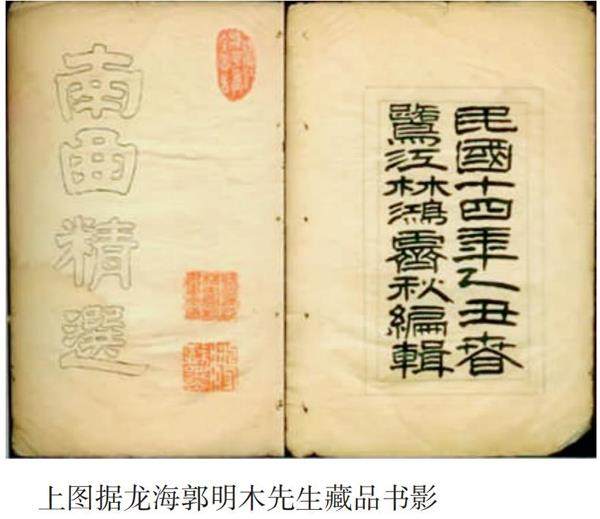 民國十四年乙丑春
鷺江林鴻霽秋編輯
南曲精選
上图据龙海郭明木先生藏品书影